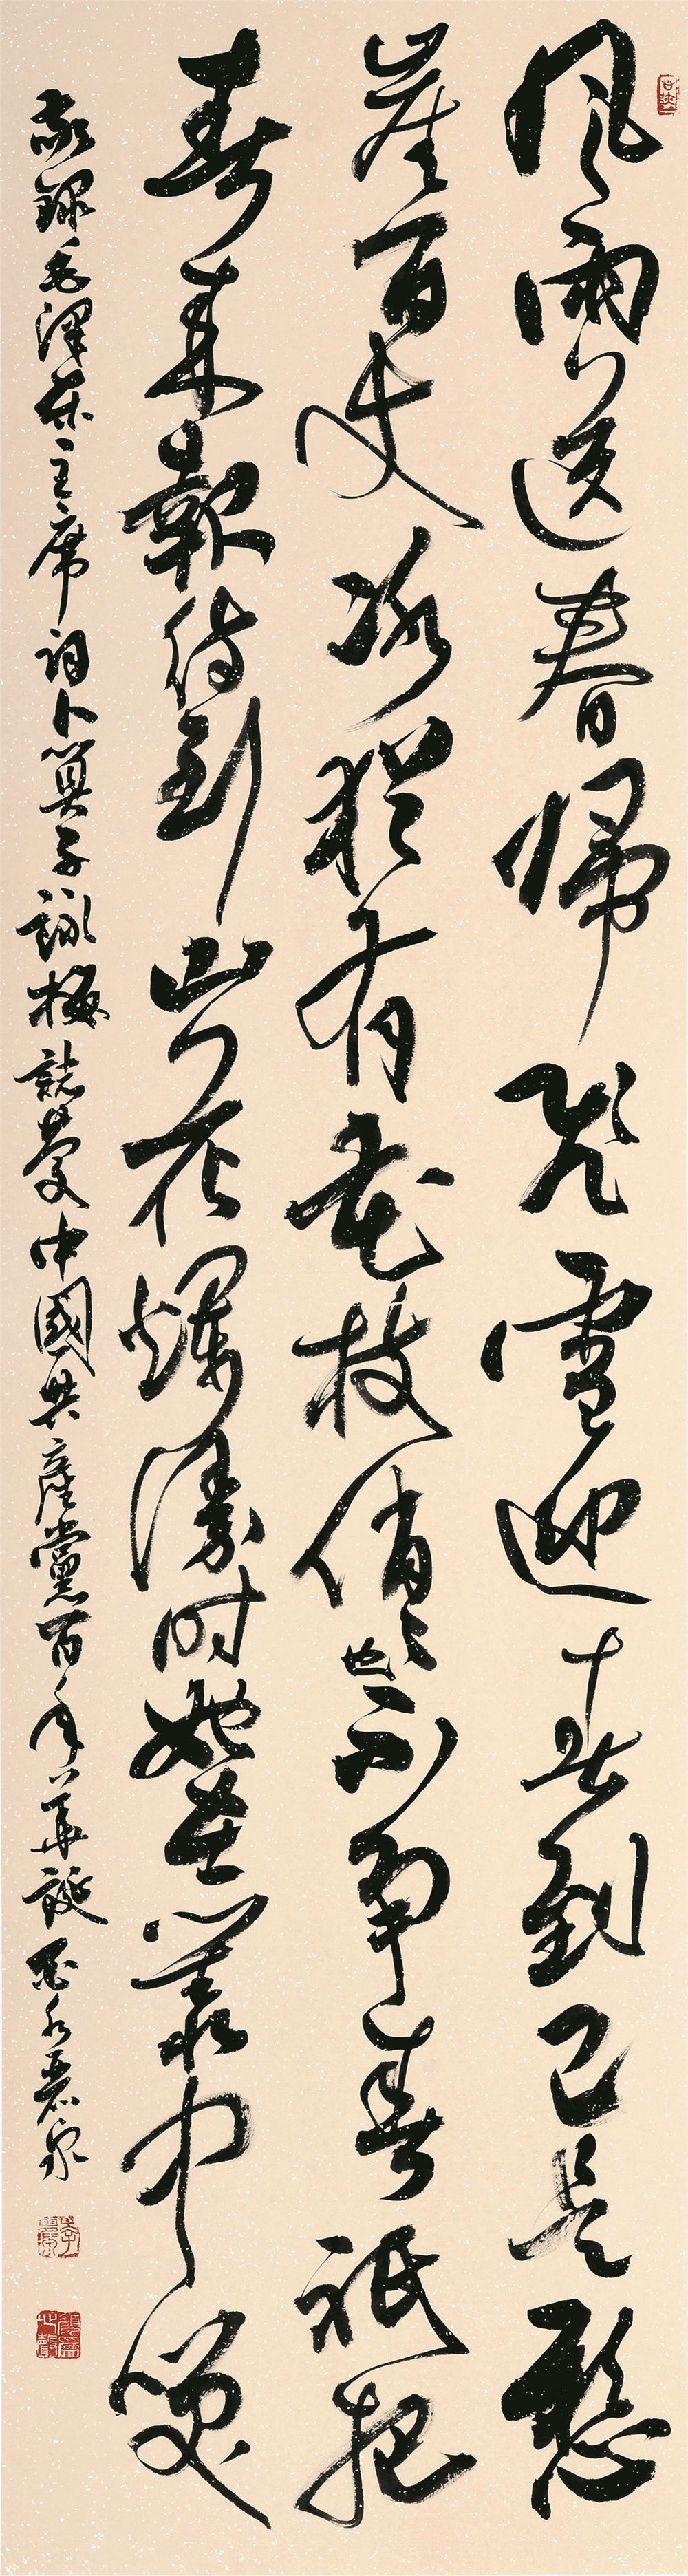 風雨送春歸飛雪迎春到已是懸
崖百丈冰猶有花枝俏〻也不爭春祇把
春來報待到山花爛漫时她在叢中笑
敬錄毛澤東主席詞卜算子詠梅誌慶中國共產黨百年華誕